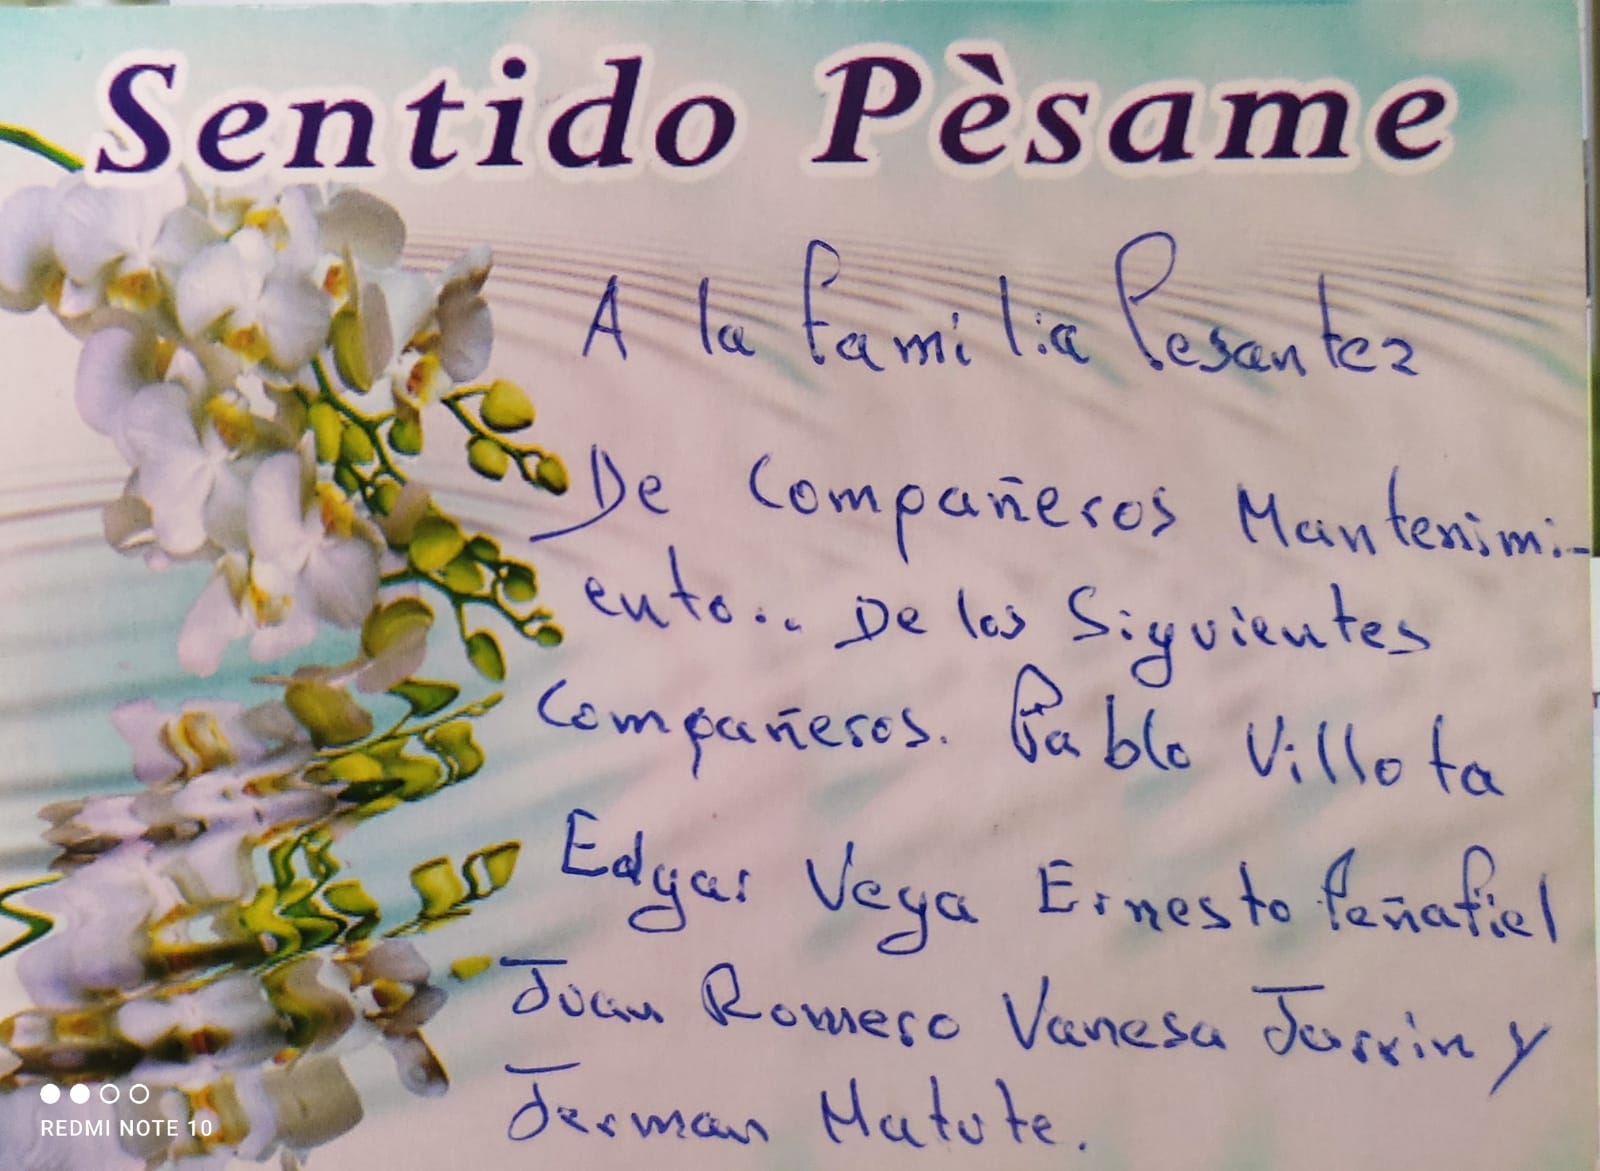 Sentido Pèsame
A la familia Pesantez
De Compañeros Mantenimi-
ento.. De los Siguientes
Compañeros. Pablo Villota
Edgar Vega Ernesto Peñafiel
Juan Romero Vanesa Jarrin y
Jerman Matute.
REDMI NOTE 10